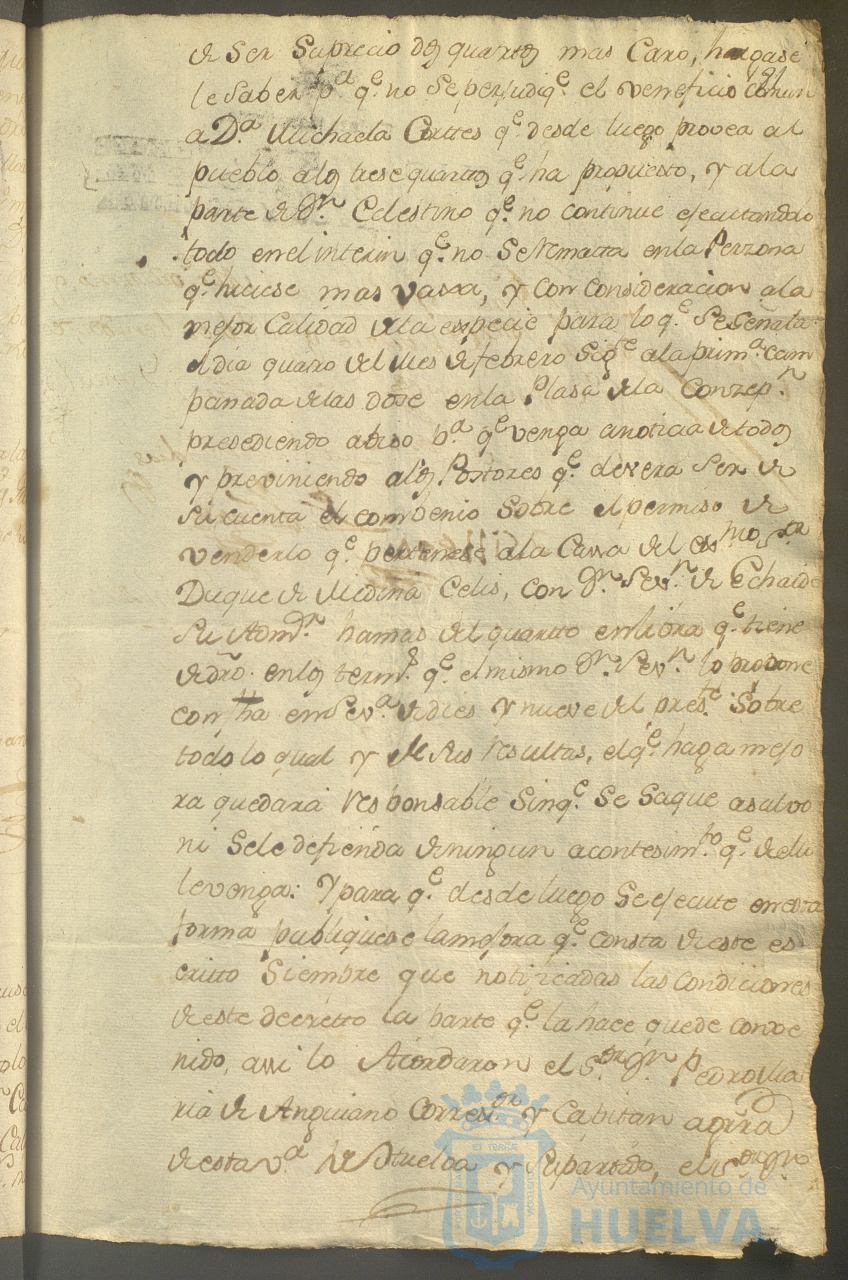 de Ser Su precio dos quartos mas Caro, hagase
le Saber pa. qe. no Se perjudiqe. el veneficio comun
a Da. Michaela Cortes qe. desde luego provea al
pueblo a los trese quartos qe. ha propuesto, y a la
parte de Dn. Celestino qe. no continue ejecutandolo
todo en el interin qe. no Se Remata en la Perzona
qe. hiciese mas vaxa, y con consideracion a la
mejor Calidad de la especie para lo qe. Se Señala
el dia quatro del Mes de febrero Sigte. a la prima. Cam
panada de las dose en la Plasa de la Conzepn.
presediendo abiso pa. qe venga a noticia de todos
y previniendo a los Postores qe. devera Ser de
Su cuenta el combenio Sobre el permiso de
venderlo qe. pertenese a la Cassa del exmo. Sor.
Duque de Medina Celis, con Dn. Sevn. de Echaide
Su Admor. hamas del quarto en libra qe. tiene
de dro. en los terms. qe. el mismo Dn. Sevn. lo propone
con fha en Seva. de dies y nueve del preste. Sobre
todo lo qual y de Sus resultas, el qe. haga mejo
ra quedará responsable Sin qe. Se Saque a salvo
ni Sele defienda de ningun acontesimto. qe. de ella
le venga: Y para qe. desde luego Se ejecute en esta
forma publiquese la mejora qe. consta de este es
critto Siempre que notificadas las condiciones
de este decretto la parte qe. la hace quede conve
nido, assi lo Acordaron el Sor. Dn. Pedro Ma
ria de Anguiano Corregor. y Capitan agura
de esta va. de Huelva y Su partido, el Sor. Dn.
Ayuntamiento de
HUELVA